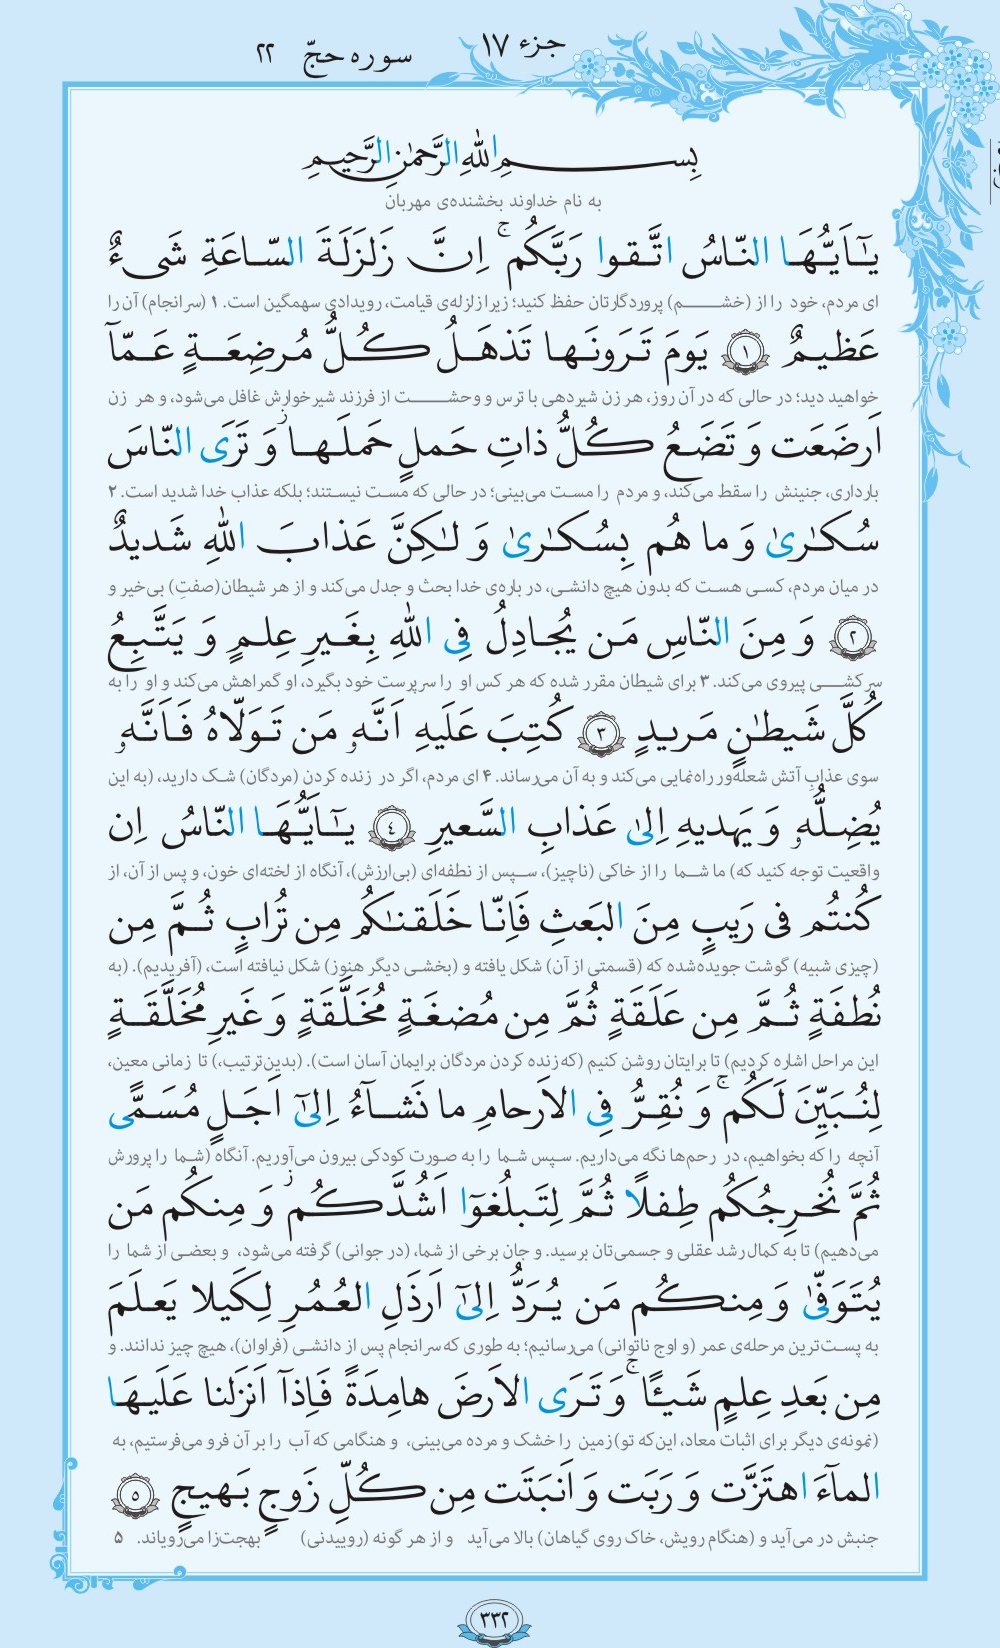 جزء ۱۷
سوره حجّ ۲۲
بِسمِ اللّٰهِ الرَّحمٰنِ الرَّحیمِ
به نام خداوند بخشنده‌ی مهربان
یٰٓاَیُّهَا النّاسُ اتَّقوا رَبَّکُم ۚ اِنَّ زَلزَلَةَ السّاعَةِ شَیءٌ
ای مردم، خود را از (خشم) پروردگارتان حفظ کنید؛ زیرا زلزله‌ی قیامت، رویدادی سهمگین است. ۱ (سرانجام) آن را
عَظیمٌ ﴿١﴾ یَومَ تَرَونَها تَذهَلُ کُلُّ مُرضِعَةٍ عَمّآ
خواهید دید؛ در حالی که در آن روز، هر زن شیردهی با ترس و وحشت از فرزند شیرخوارش غافل می‌شود، و هر زن
اَرضَعَت وَ تَضَعُ کُلُّ ذاتِ حَملٍ حَملَها ز وَ تَرَی النّاسَ
بارداری، جنینش را سقط می‌کند، و مردم را مست می‌بینی؛ در حالی که مست نیستند؛ بلکه عذاب خدا شدید است. ۲
سُکٰریٰ وَ ما هُم بِسُکٰریٰ وَ لٰکِنَّ عَذابَ اللّٰهِ شَدیدٌ
در میان مردم، کسی هست که بدون هیچ دانشی، در باره‌ی خدا بحث و جدل می‌کند و از هر شیطان(صفتِ) بی‌خیر و
﴿٢﴾ وَ مِنَ النّاسِ مَن یُجادِلُ فِی اللّٰهِ بِغَیرِ عِلمٍ وَ یَتَّبِعُ
سرکشی پیروی می‌کند. ۳ برای شیطان مقرر شده که هر کس او را سرپرست خود بگیرد، او گمراهش می‌کند و او را به
کُلَّ شَیطٰنٍ مَریدٍ ﴿٣﴾ کُتِبَ عَلَیهِ اَنَّهٗ مَن تَوَلّاهُ فَاَنَّهٗ
سوی عذابِ آتش شعله‌ور راه‌نمایی می‌کند و به آن می‌رساند. ۴ ای مردم، اگر در زنده کردن (مردگان) شک دارید، (به این
یُضِلُّهٗ وَ یَهدیهِ اِلیٰ عَذابِ السَّعیرِ ﴿٤﴾ یٰٓاَیُّهَا النّاسُ اِن
واقعیت توجه کنید که) ما شما را از خاکی (ناچیز)، سپس از نطفه‌ای (بی‌ارزش)، آنگاه از لخته‌ای خون، و پس از آن، از
کُنتُم فی رَیبٍ مِنَ البَعثِ فَاِنّا خَلَقنٰکُم مِن تُرابٍ ثُمَّ مِن
(چیزی شبیه) گوشت جویده‌شده که (قسمتی از آن) شکل یافته و (بخشی دیگر هنوز) شکل نیافته است، (آفریدیم). (به
نُطفَةٍ ثُمَّ مِن عَلَقَةٍ ثُمَّ مِن مُضغَةٍ مُخَلَّقَةٍ وَ غَیرِ مُخَلَّقَةٍ
این مراحل اشاره کردیم) تا برایتان روشن کنیم (که زنده کردن مردگان برایمان آسان است). (بدین‌ترتیب،) تا زمانی معین،
لِنُبَیِّنَ لَکُم ۚ وَ نُقِرُّ فِی الاَرحامِ ما نَشآءُ اِلیٰٓ اَجَلٍ مُسَمًّی
آنچه را که بخواهیم، در رحم‌ها نگه می‌داریم. سپس شما را به صورت کودکی بیرون می‌آوریم. آنگاه (شما را پرورش
ثُمَّ نُخرِجُکُم طِفلًا ثُمَّ لِتَبلُغوٓا اَشُدَّکُم ز وَ مِنکُم مَن
می‌دهیم) تا به کمال رشد عقلی و جسمی‌تان برسید. و جان برخی از شما، (در جوانی) گرفته می‌شود، و بعضی از شما را
یُتَوَفّیٰ وَ مِنکُم مَن یُرَدُّ اِلیٰٓ اَرذَلِ العُمُرِ لِکَیلا یَعلَمَ
به پست‌ترین مرحله‌ی عمر (و اوج ناتوانی) می‌رسانیم؛ به طوری که سرانجام پس از دانشی (فراوان)، هیچ چیز ندانند. و
مِن بَعدِ عِلمٍ شَیئًا ۚ وَ تَرَی الاَرضَ هامِدَةً فَاِذآ اَنزَلنا عَلَیهَا
(نمونه‌ی دیگر برای اثبات معاد، این‌که تو) زمین را خشک و مرده می‌بینی، و هنگامی که آب را بر آن فرو می‌فرستیم، به
المآءَ اهتَزَّت وَ رَبَت وَ اَنبَتَت مِن کُلِّ زَوجٍ بَهیجٍ ﴿٥﴾
جنبش در می‌آید و (هنگام رویش، خاک روی گیاهان) بالا می‌آید و از هر گونه (روییدنی) بهجت‌زا می‌رویاند. ۵
۳۳۲